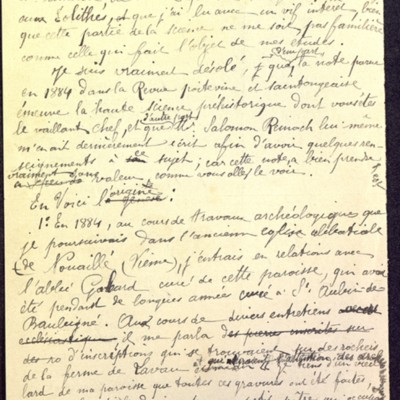 aux Eolithes, et que j'ai lu avec un vif intérêt, bien
que cette partie de la science ne me soit pas familière
comme celle qui fait l'objet de mes études.
Je suis vraiment désolé, d'une part que la note parue
en 1884 dans la Revue poitevine et saintongeaise
émeuve la haute science préhistorique dont vous êtes
le vaillant chef, et d'autre part que Mr. Salomon Reinach lui-même
m'en ait dernièrement écrit afin d'avoir quelques ren-
seignements à ce sujet ; car cette note a bien peu de
vraiment sans valeur, comme vous allez le voir.
En Voici l'origine :
1º. En 1884, au cours de travaux archéologiques que
je poursuivais dans l'ancienne église abbatiale
de Nouaillé (Vienne), j'entrais en relations avec
l'abbé Gabard curé de cette paroisse, qui avait
été pendant de longues années curé à St. Aubin-de
Baubigné. Au cours de divers entretiens
ecclésiastique il me parla des pierres inscrites sur
des d'inscriptions qui se trouvaient sur des rochers
de la ferme de Vaveau et
lard de ma paroisse que toutes ces gravures ont été faites